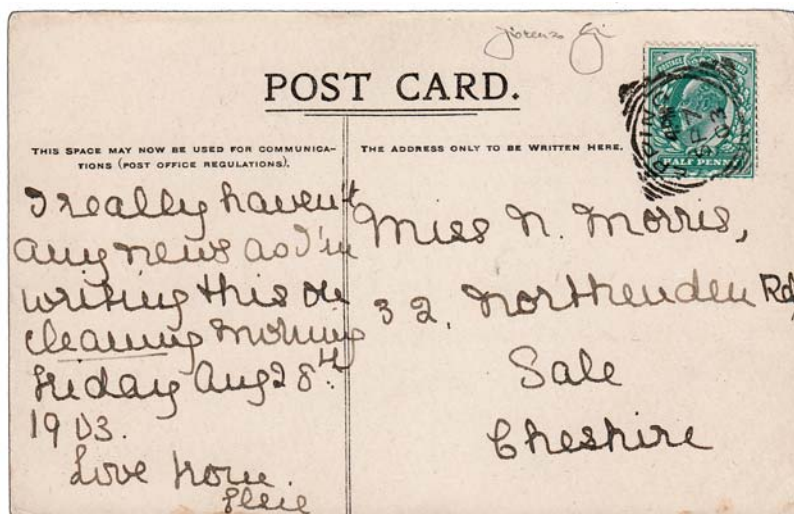 POST CARD.
THIS SPACE MAY NOW BE USED FOR COMMUNICA-
TIONS (POST OFFICE REGULATIONS).
THE ADDRESS ONLY TO BE WRITTEN HERE.
POSTAGE
HALF PENNY
EPPING
SP 7
03
I really haven't
any news as I'm
writing this on
cleaning morning
Friday Aug 28th
1903.
Love from
Elsie
Miss N. Morris,
32, Northenden Rd,
Sale
Cheshire